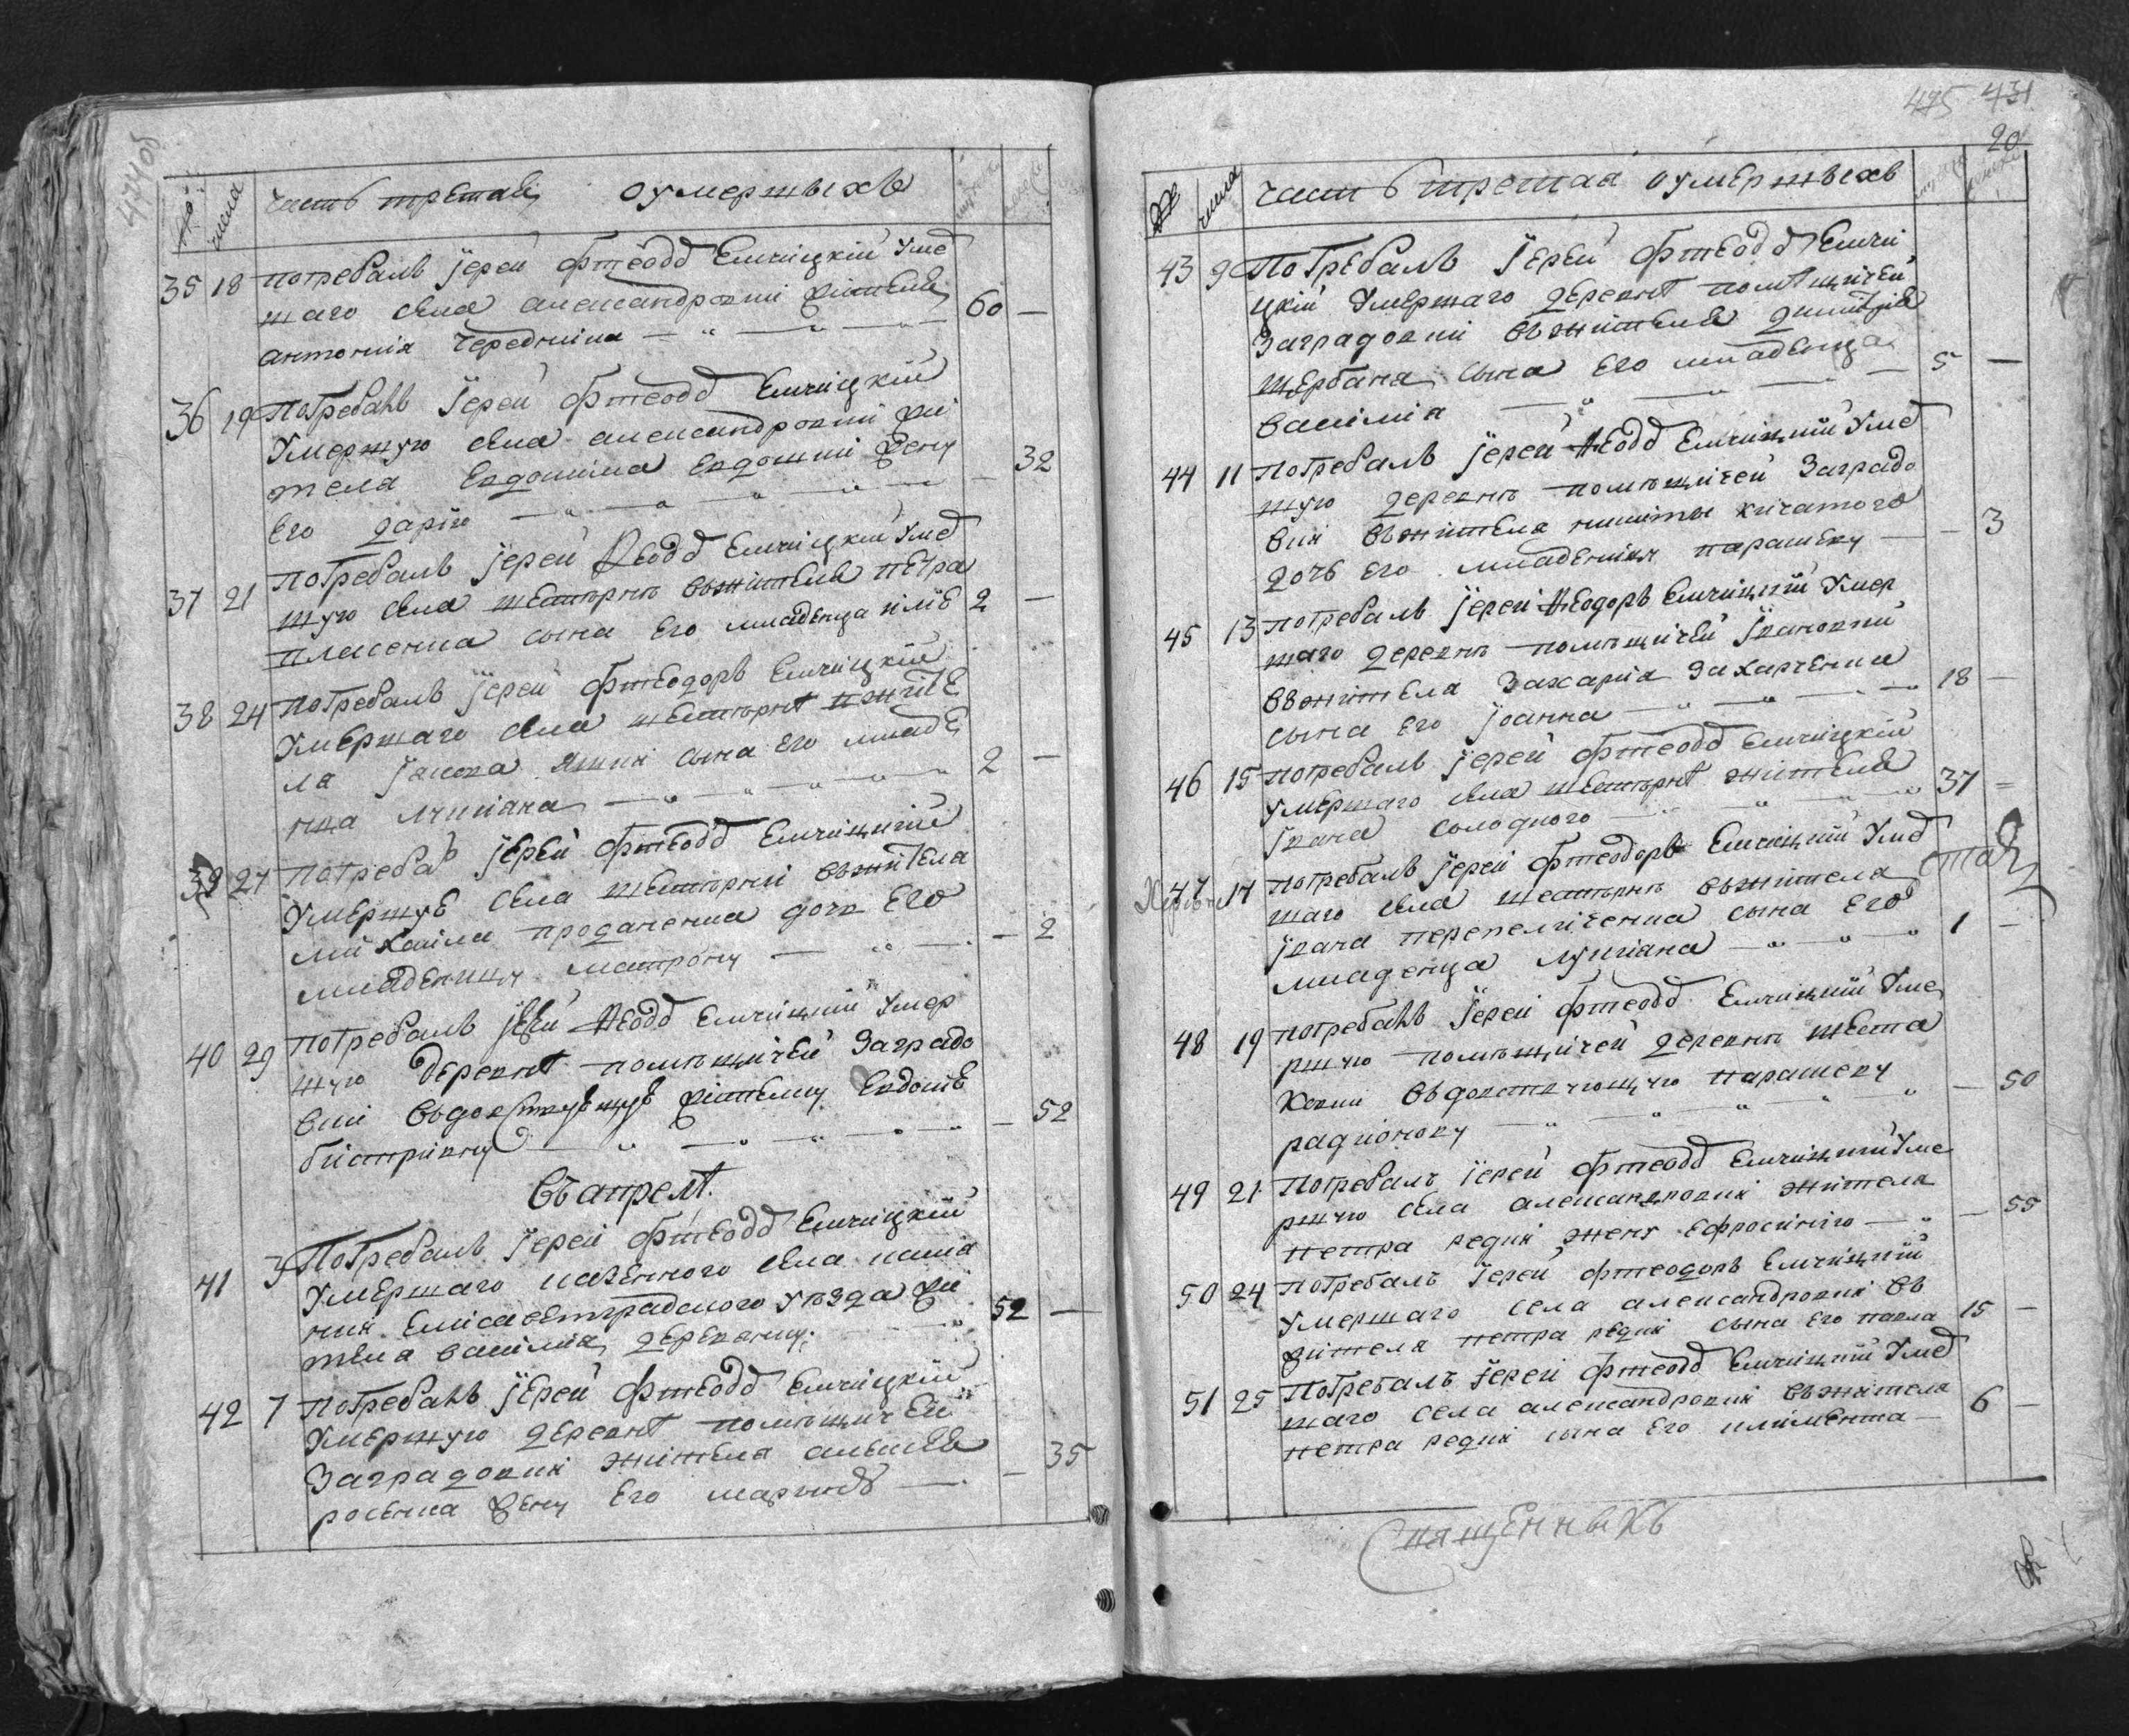 474об
№ числа Часть третая оумершыхъ
35 18 погребалъ Іерей Фтеодд Емчицкій Уме
ршаго села александровки жителя
антонія Чередника 60 —
36 19 Погребалъ Іерей Фтеодд Емчицкій
Умершую села александровки жи
теля Евдокима Евдошки жену
Его дарію — 32
37 21 Погребалъ Іерей Феодд Емчицкій Уме
ршую села шестѣрнѣ въжителя петра
пласенка сына его младенца илїе 2 —
38 24 Погребалъ Іерей Фтеодоръ Емчицкій
Умершаго села шестѣрнѣ жите
ля Якова Яшки сына его младе
нца лукіана 2 —
39 27 Погреба Іерей Фтеодд Емчицкій
Умершую села шестѣрни въжителя
михаила проданенка дочь Его
младеницу матрону — 2
40 29 Погребалъ Іерей Феодд Емчицкій Умер
шую Деревнѣ помѣщичей Заградо
вки въдовствующую жителку Евдокію
бистрикву — 52
Въ апрелѣ.
41 3 Погребалъ Іерей Фтеодд Емчицкій
Умершаго казенного села
Елисаветградского уѣзда жи
теля василія деревянку 52 —
42 7 Погребалъ Іерей Фтеодд Емчицкій
Умершую деревнѣ помѣщичей
Заградовки жителя алексѣя
росенка жену Его марію — 35
475 431
20
№ числа Часть третая оумершыхъ
43 9 Погребалъ Іерей Фтеодд Емчи
цкій Умершаго деревнѣ помѣщичей
Заградовки въжителя димитрія
щербана сына его младенца
василія 5 —
44 11 Погребалъ Іерей Феодд Емчицкій Уме
ршую деревнѣ помѣщичей Заградо
вки въжителя никиты кичатого
дочь его младеницу парашеву — 3
45 13 погребалъ Іерей Феодоръ Емчицкій Умер
шаго деревнѣ помѣщичей Івановки
въжителя Захарія Захарченка
сына его Іоанна 18 —
46 15 погребалъ Іерей Фтеодд Емчицкій
умершаго села шестѣрнѣ жителя
Івана солодного 37 —
47 17 погребалъ Іерей Фтеодоръ Емчицкій Уме
ршаго села шестѣрнѣ въжителя
Івана перепеличенка сына его
младенца лукіана 1 —
48 19 погребалъ Іерей Фтеодд Емчицкій Уме
ршую помѣщичей деревнѣ Шеста
ковки въдовствующую парашеву
радионову — 50
49 21 Погребалъ Іерей Фтеодд Емчицкій Уме
ршую села александровки жителя
петра редки жену ефросинїю — 55
50 24 Погребалъ Іерей Фтеодоръ Емчицкій
Умершаго села александровки въ
жителя петра редки сына его павла 15 —
51 25 Погребалъ Іерей Фтеодд Емчицкій Уме
ршаго села александровки въжителя
петра редки сына его климента 6 —
Священныхъ